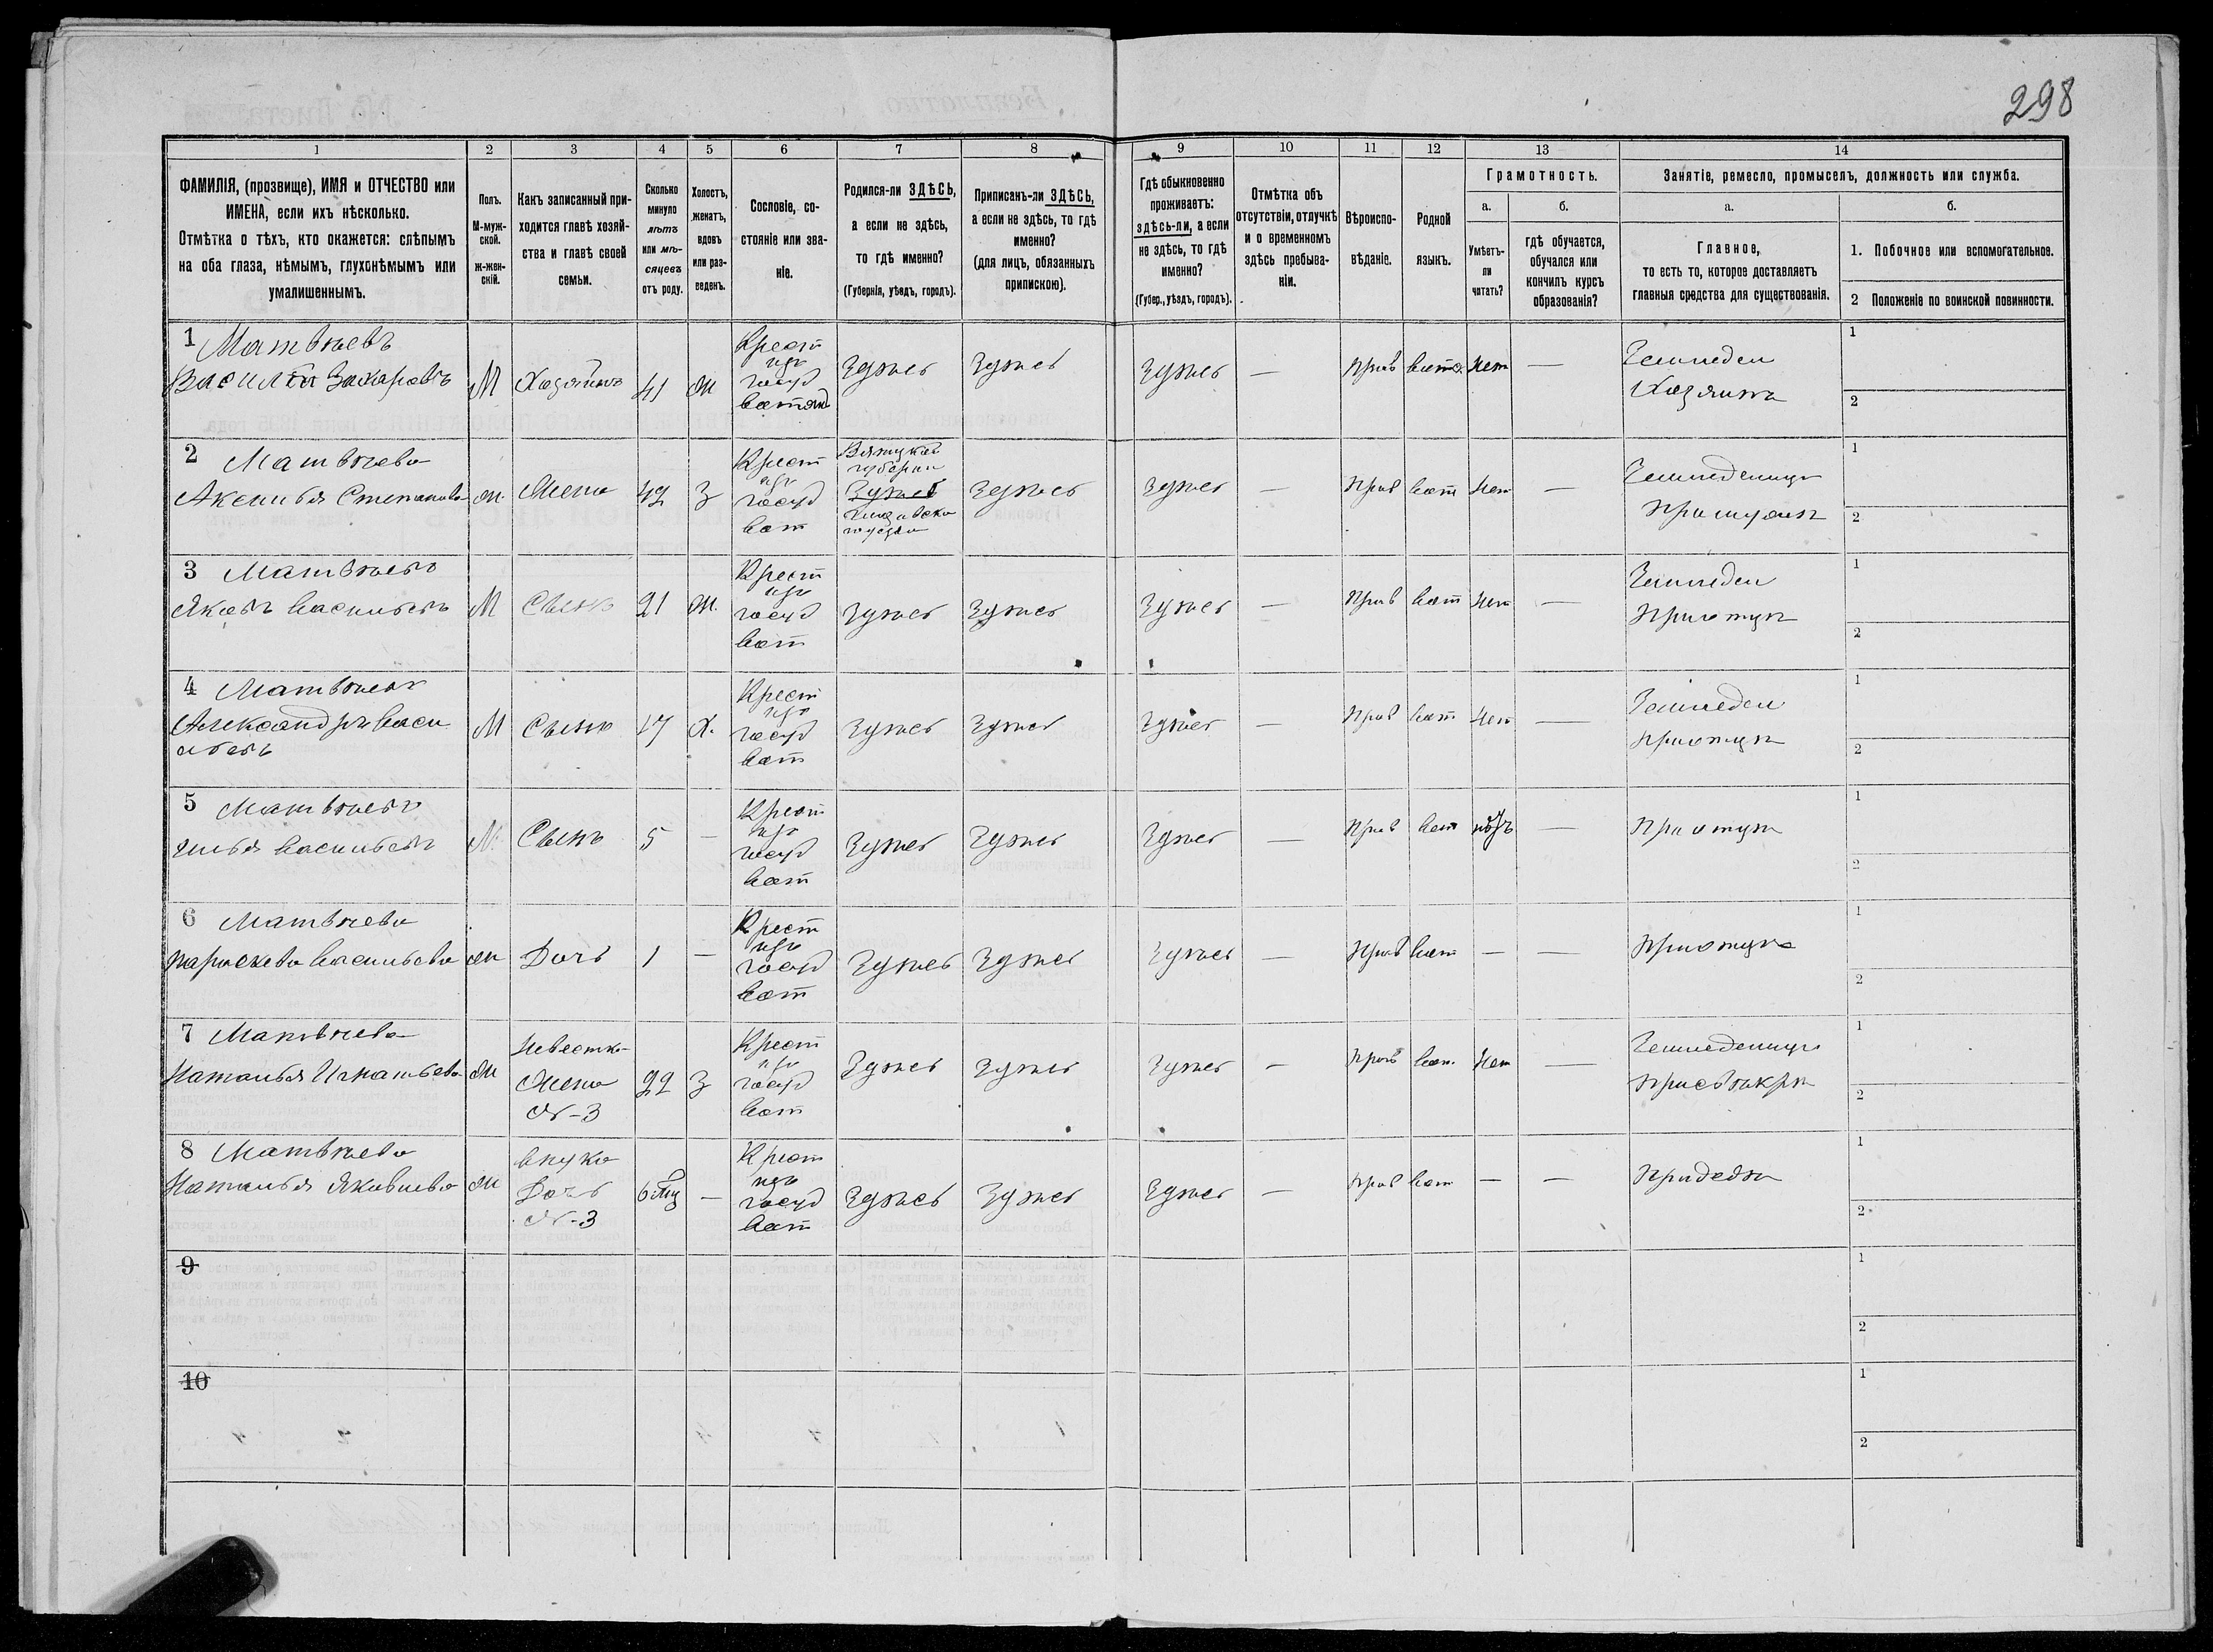 298
1 2 3 4 5 6 7 8 9 10 11 12 13 14
ФАМИЛІЯ, (прозвище), ИМЯ и ОТЧЕСТВО или
ИМЕНА, если ихъ нѣсколько.
Отмѣтка о тѣхъ, кто окажется: слѣпымъ
на оба глаза, нѣмымъ, глухонѣмымъ или
умалишеннымъ.
Полъ.
М-муж-
ской.
ж-жен-
скій.
Какъ записанный при-
ходится главѣ хозяй-
ства и главѣ своей
семьи.
Сколько
минуло
лѣтъ
или мѣ-
сяцевъ
отъ роду.
Холостъ,
женатъ,
вдовъ
или раз-
веденъ.
Сословіе, со-
стояніе или зва-
ніе.
Родился-ли ЗДѢСЬ,
а если не здѣсь,
то гдѣ именно?
(Губернія, уѣздъ, городъ).
Приписанъ-ли ЗДѢСЬ,
а если не здѣсь, то гдѣ
именно?
(для лицъ, обязанныхъ
припискою).
Гдѣ обыкновенно
проживаетъ:
здѣсь-ли, а если
не здѣсь, то гдѣ
именно?
(Губер., уѣздъ, городъ).
Отмѣтка объ
отсутствіи, отлучкѣ
и о временномъ
здѣсь пребыва-
ніи.
Вѣроиспо-
вѣданіе.
Родной
языкъ.
Грамотность.
а.
Умѣетъ-
ли
читать?
б.
гдѣ обучается,
обучался или
кончилъ курсъ
образованія?
Занятіе, ремесло, промыселъ, должность или служба.
а.
Главное,
то есть то, которое доставляетъ
главныя средства для существованія.
б.
1. Побочное или вспомогательное.
2 Положеніе по воинской повинности.
1 Матвѣевъ
Василій Захаровъ
М
Хозяинъ
41
ж
Крест
изъ
госуд
Здѣсь
Здѣсь
Здѣсь
—
Прав
нет
—
Земледел
Хозяинъ
1
2
2 Матвѣева
Аксинья Степанова
ж
Жена
42
З
Крест
изъ
госуд
вот
Вятской
губерни
Здѣсь
Здѣсь
—
Прав
вот
нет
—
1
2
3 Матвѣевъ
Яковъ Васильевъ
М
Сынъ
21
ж.
Крест
изъ
госуд
вот
Здѣсь
Здѣсь
Здѣсь
—
Прав
вот
нет
—
Земледел
При отцѣ
1
2
4 Матвѣевъ
Александръ Васи
льевъ
М
Сынъ
17
Х.
Крест
изъ
госуд
вот
Здѣсь
Здѣсь
Здѣсь
—
Прав
вот
нет
—
Земледел
При отцѣ
1
2
5 Матвѣевъ
Илья Васильевъ
М
Сынъ
5
—
Крест
изъ
госуд
вот
Здѣсь
Здѣсь
Здѣсь
—
Прав
вот
—
При отцѣ
1
2
6 Матвѣева
Параскева Васильева
ж
Дочь
1
—
Крест
изъ
госуд
вот
Здѣсь
Здѣсь
Здѣсь
—
Прав
вот
—
—
При отцѣ
1
2
7 Матвѣева
Наталья Игнатьева
ж
Невестка
Жена
№-3
22
З
Крест
изъ
госуд
вот
Здѣсь
Здѣсь
Здѣсь
—
Прав
вот
нет
—
При свѣкрѣ
1
2
8 Матвѣева
Наталья Яковлева
ж
Внука
Дочь
№-3
6 мц
—
Крест
изъ
госуд
вот
Здѣсь
Здѣсь
Здѣсь
—
Прав
вот
—
—
При дедѣ
1
2
9
1
2
10
1
2